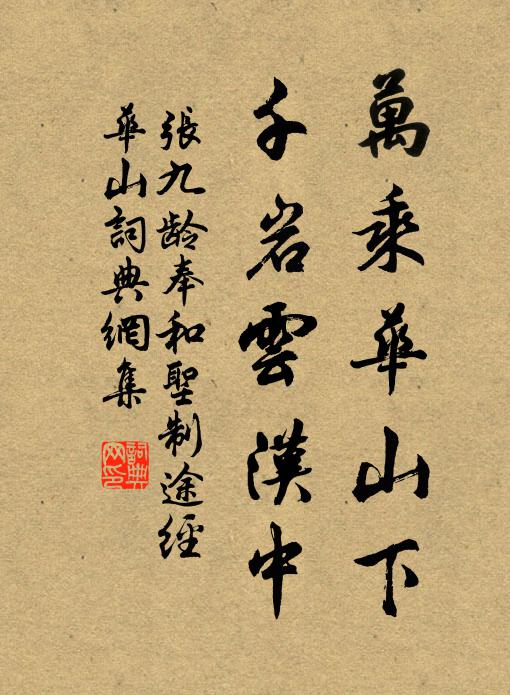 萬乘華山下
千岩雲漢中
張九龄奉和聖制途經
華山詞典網集
詞典
网印